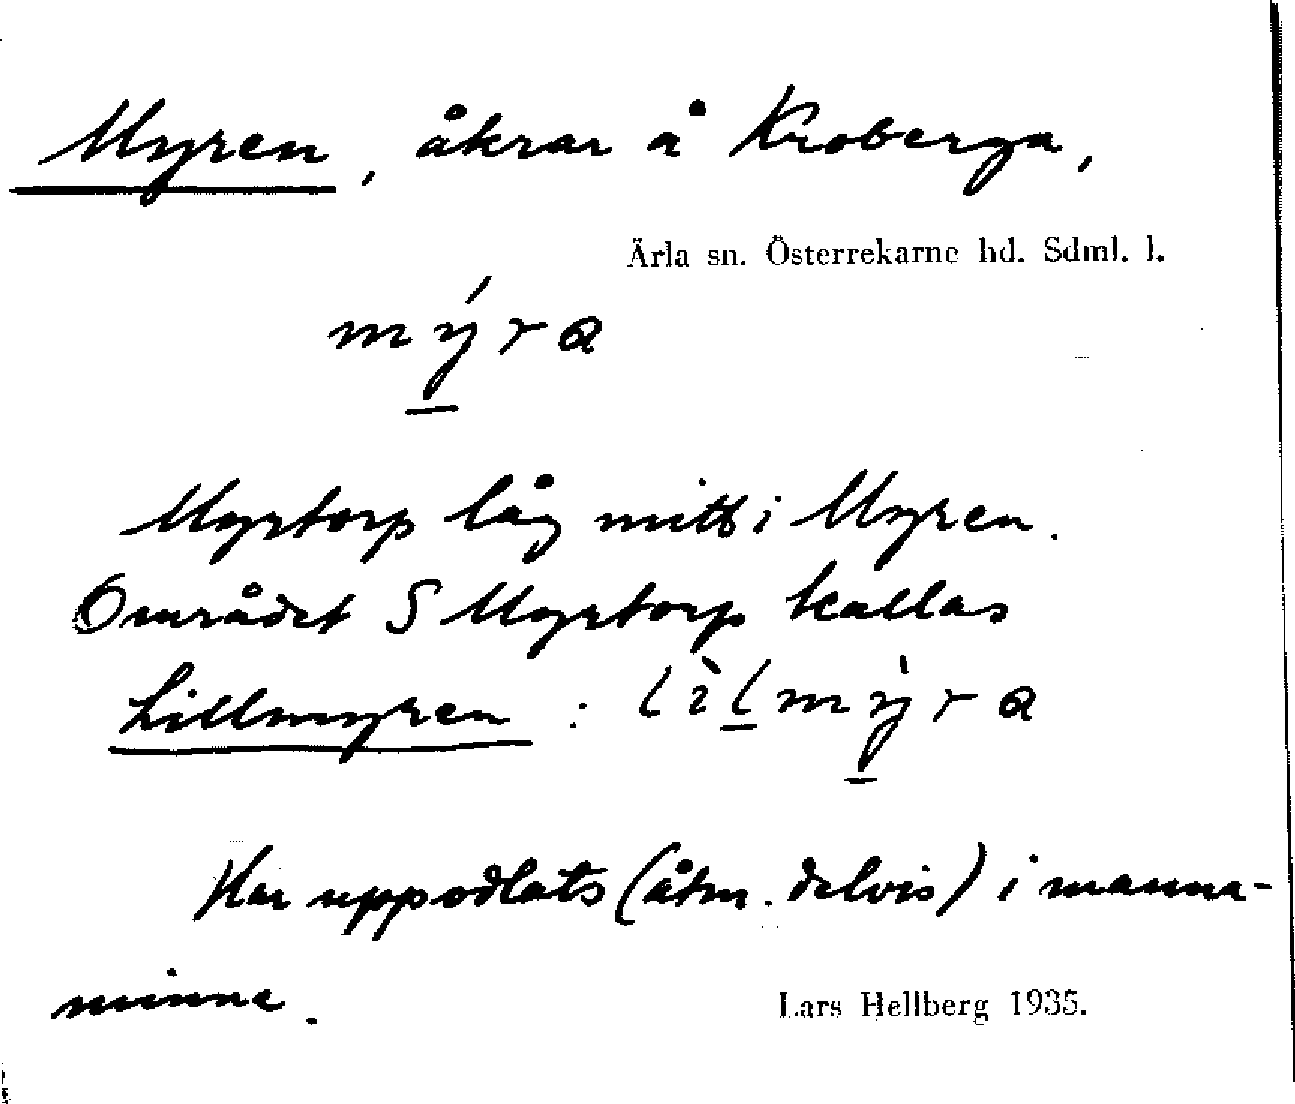 Myren, åkrar å Kroberga,
Ärla sn. Österrekarne hd. Sdml. l.
mýra
Myrtorp låg mitt i Myren.
Området S Myrtorp kallas
Lillmyren: lìlmỳra
Har uppodlats (åtm. delvis) i manna-
minne.
Lars Hellberg 1935.